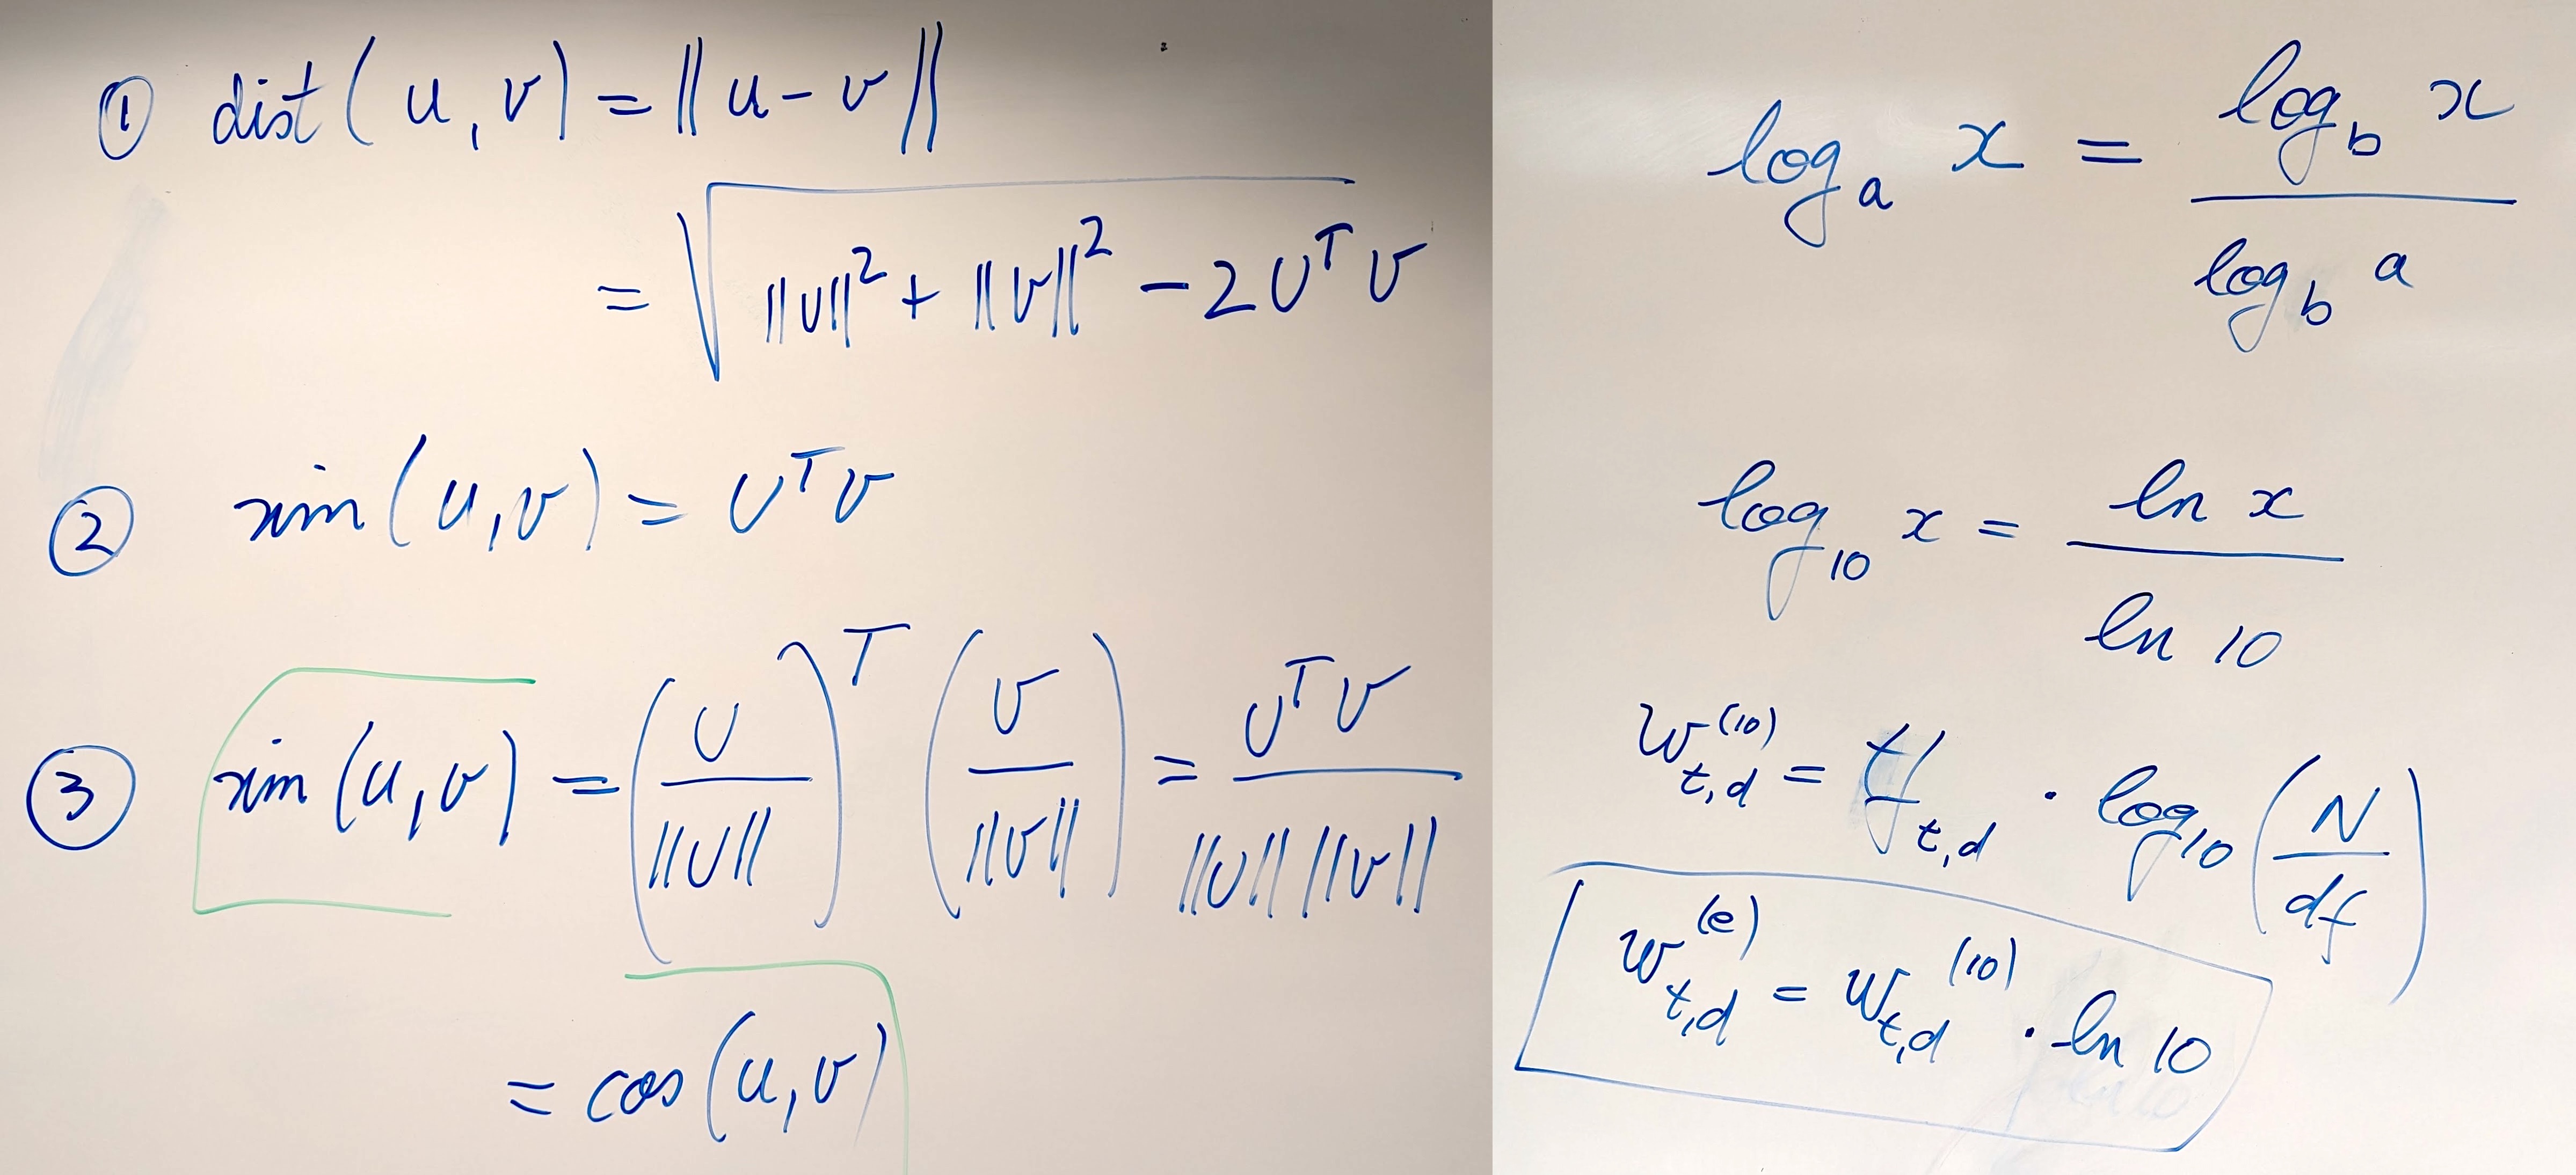 ① dist(u,v) = ||u-v||
= √(||u||² + ||v||² - 2u^T v)
② sim(u,v) = u^T v
③ sim(u,v) = (u/||u||)^T (v/||v||) = u^T v / (||u|| ||v||)
= cos(u,v)
log_a x = log_b x / log_b a
log_10 x = ln x / ln 10
w_{t,d}^{(10)} = tf_{t,d} · log_10 (N/df)
w_{t,d}^{(e)} = w_{t,d}^{(10)} · ln 10